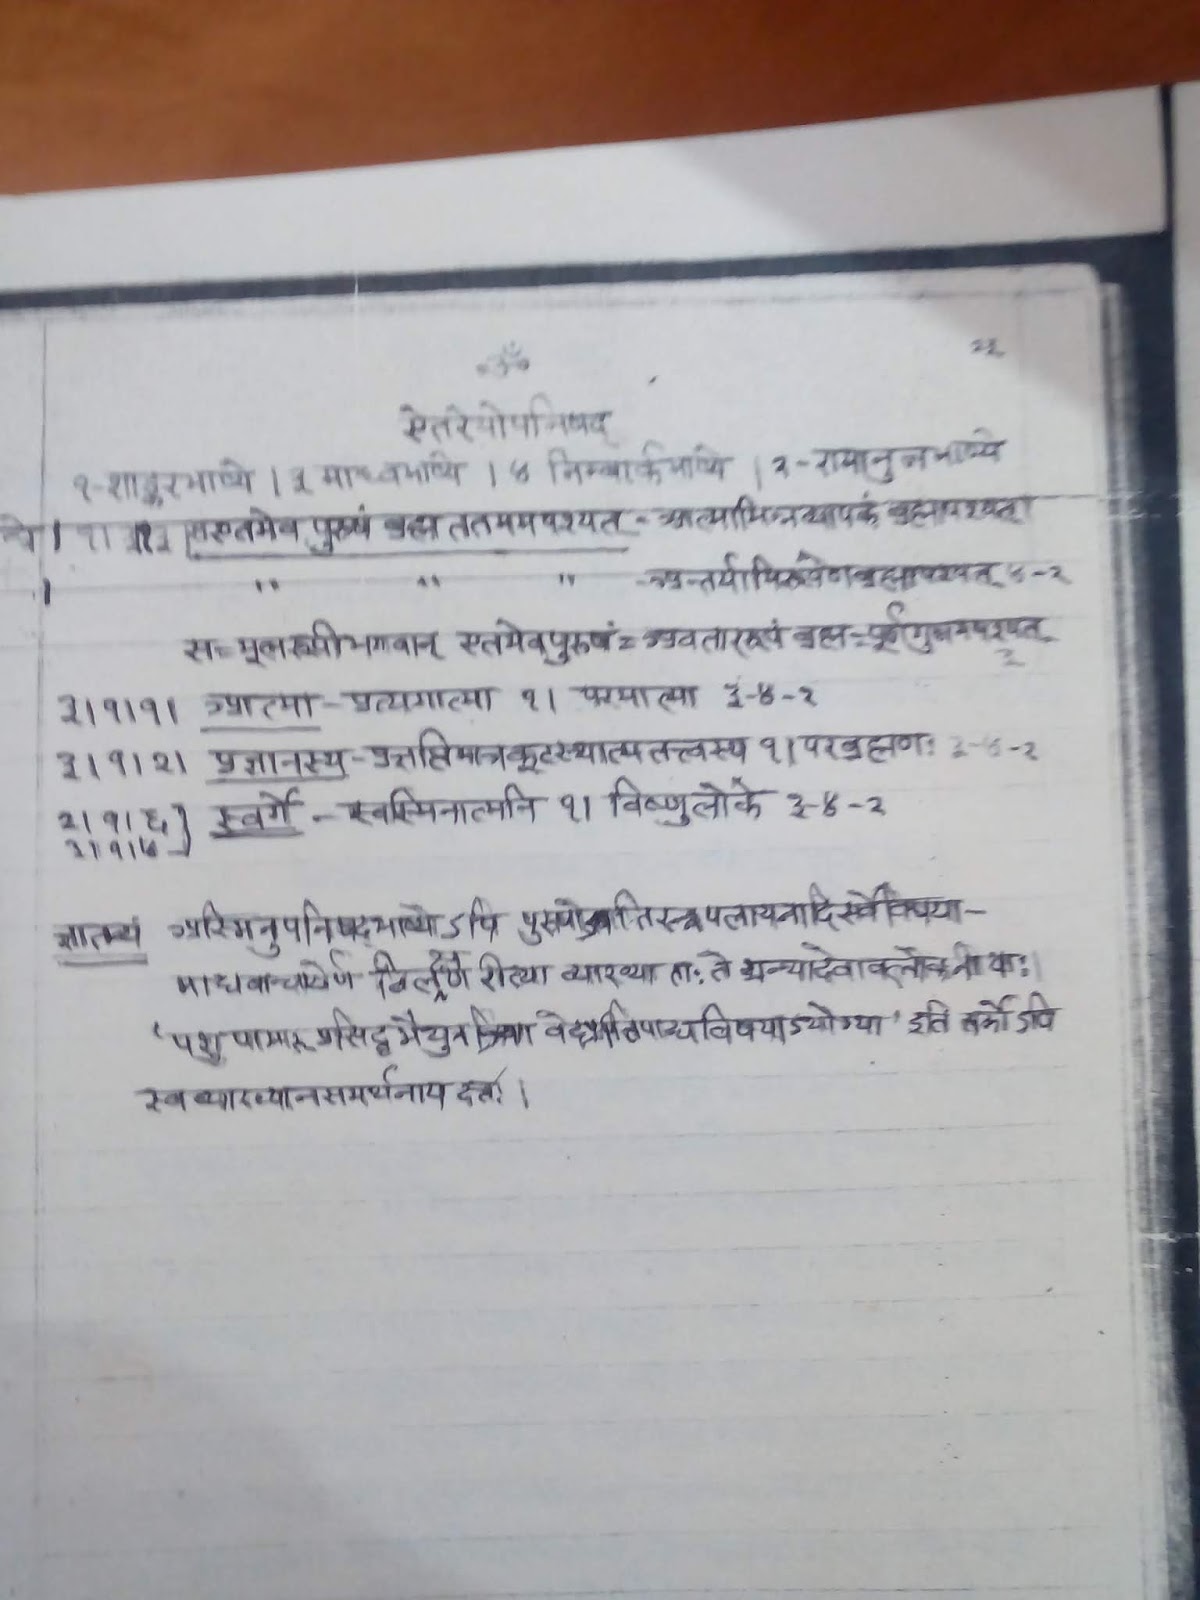 ॐ
ऐतरेयोपनिषद्
१-शाङ्करभाष्ये । ३ माध्वभाष्ये । ४ निम्बार्कभाष्ये । २-रामानुजभाष्ये
एतमेव पुरुषं ब्रह्म ततममपश्यत् - आत्माभिन्नव्यापकं ब्रह्मापश्यत्।
। " " " -अन्तर्यामिरूपेण ब्रह्मापश्यत् ४-२
सः=मूलरूपीभगवान् एतमेवपुरुषं= अवताररूपं ब्रह्म=पूर्णगुणमपश्यत्
३
३।१।१। आत्मा-प्रत्यगात्मा १। परमात्मा ३-४-२
३।१।२। प्रज्ञानस्य-प्रज्ञप्तिमात्रकूटस्थात्मतत्त्वस्य १। परब्रह्मणः ३-४-२
२।१।६ स्वर्गे - स्वस्मिनात्मनि १। विष्णुलोके ३-४-२
३।१।४
ज्ञातव्यं अस्मिनुपनिषद्भाष्येऽपि पलायनादिसर्वेविषया-
माधवाचार्येण रीत्या व्याख्याताः ते
'पशु पामर प्रसिद्ध मैथुन क्रिया वेदप्रतिपाद्यविषयाऽयोग्या' इति तर्कोऽपि
स्वव्याख्यानसमर्थनाय दत्तः ।